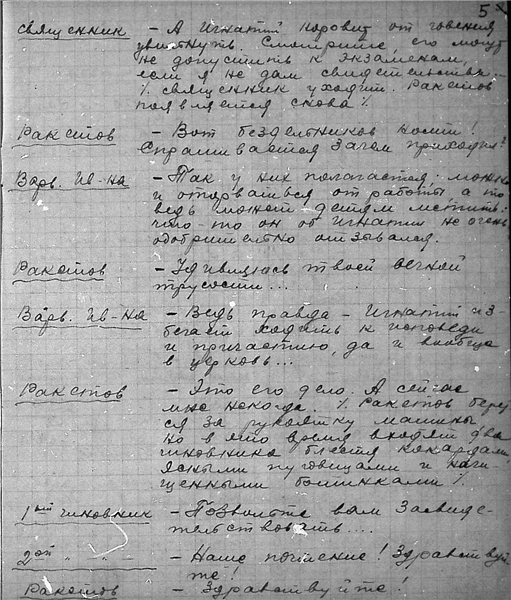 5
Священник – А Игнатий норовит от говения
увильнуть. Смотрите, его могут
не допустить к экзаменам,
если я не дам свидетельства...
% священник уходит. Ракетов
появляется снова %
Ракетов – Вот бездельников носит!
Спрашивается зачем приходил?
Варв. Ив-на – Так у них полагается. можно
и оторваться от работы а то
ведь может детям мстить:
что-то он об Игнатии не очень
одобрительно отзывался.
Ракетов – Удивляюсь твоей вечной
трусости...
Варв. Ив-на – Ведь правда – Игнатий из-
бегает ходить к исповеди
и причастию, да и вообще
в церковь...
Ракетов – Это его дело. А сейчас
мне некогда. % Ракетов берет-
ся за рукоятку машины
но в это время входят два
чиновника блестя кокардами
ясными пуговицами и начи-
щенными ботинками %
1ый чиновник – Позвольте вам засвиде-
тельствовать....
2ой " " – Наше почтение! Здравствуй-
те!
Ракетов – Здравствуйте!